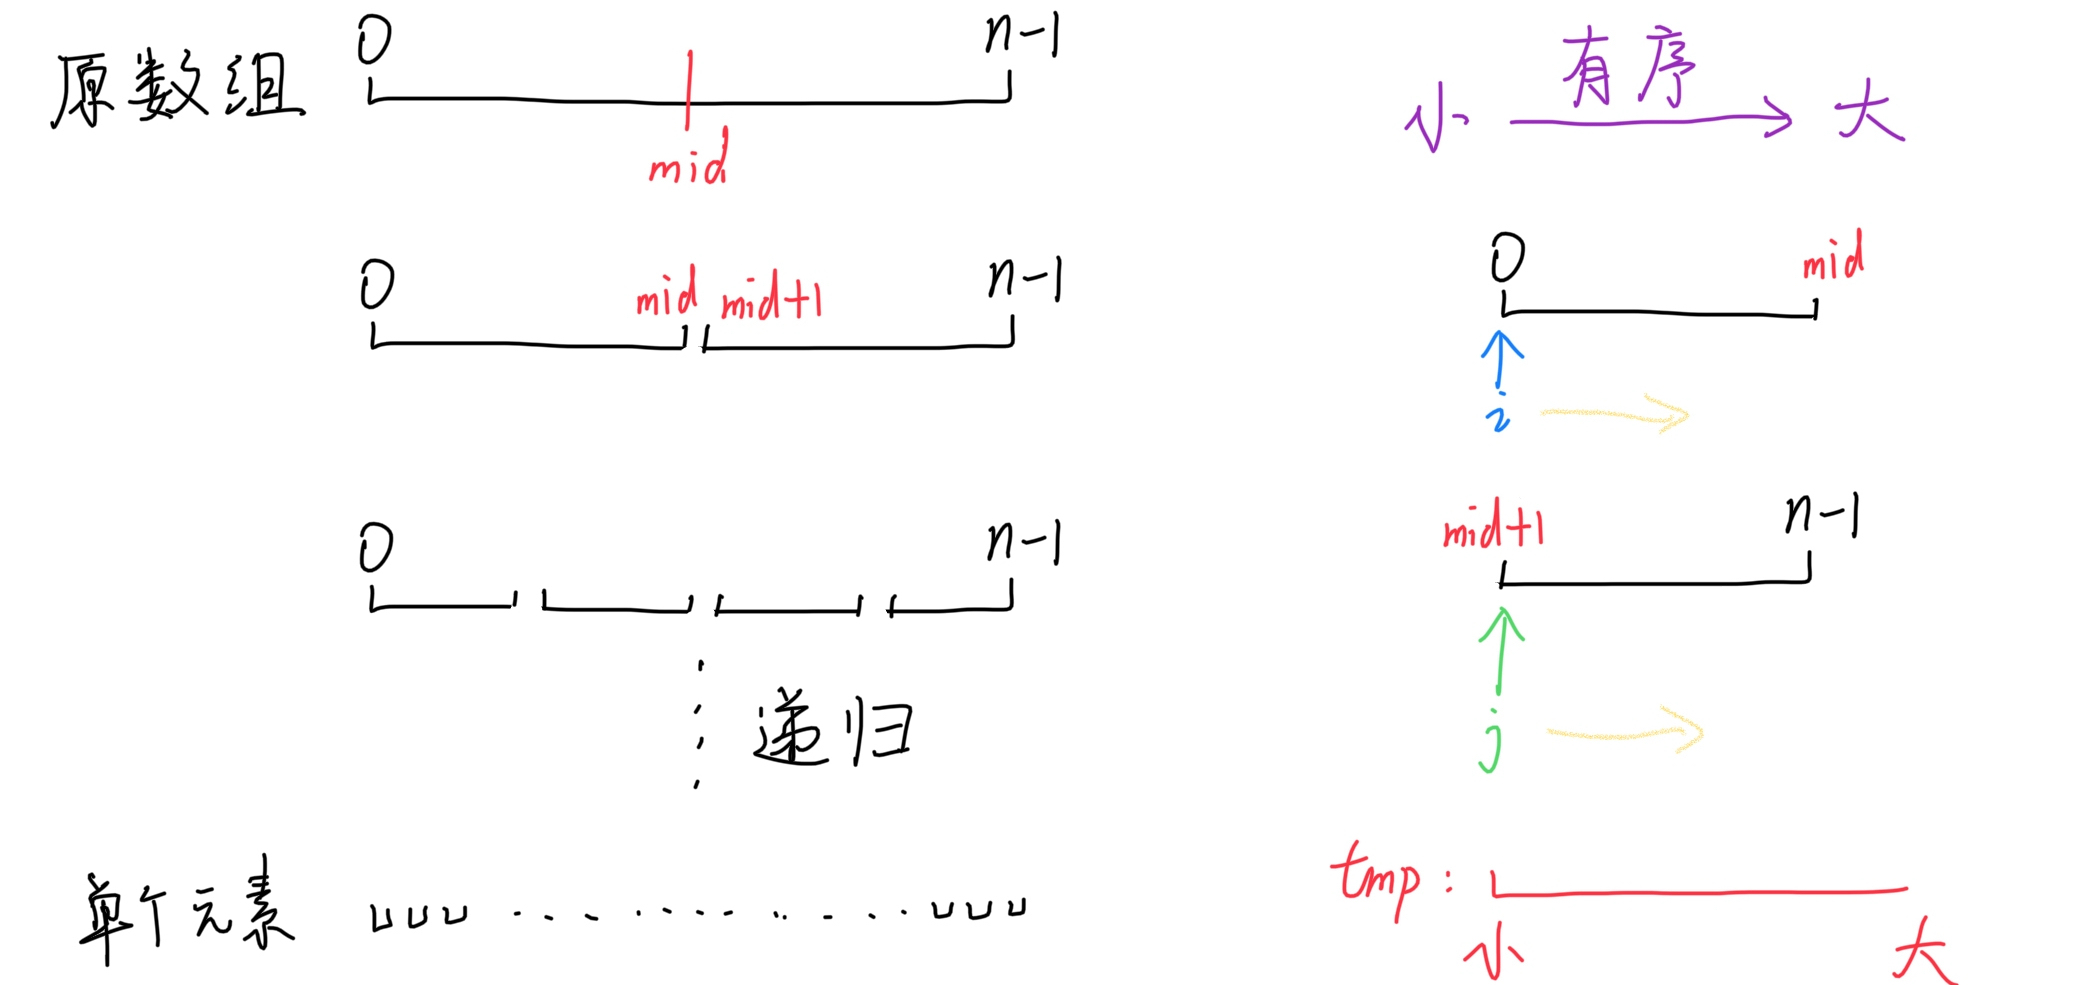 原数组 0 n-1
mid
0 mid mid+1 n-1
0 n-1
递归
单个元素
小 有序 大
0 mid
i
mid+1 n-1
j
tmp:
小 大